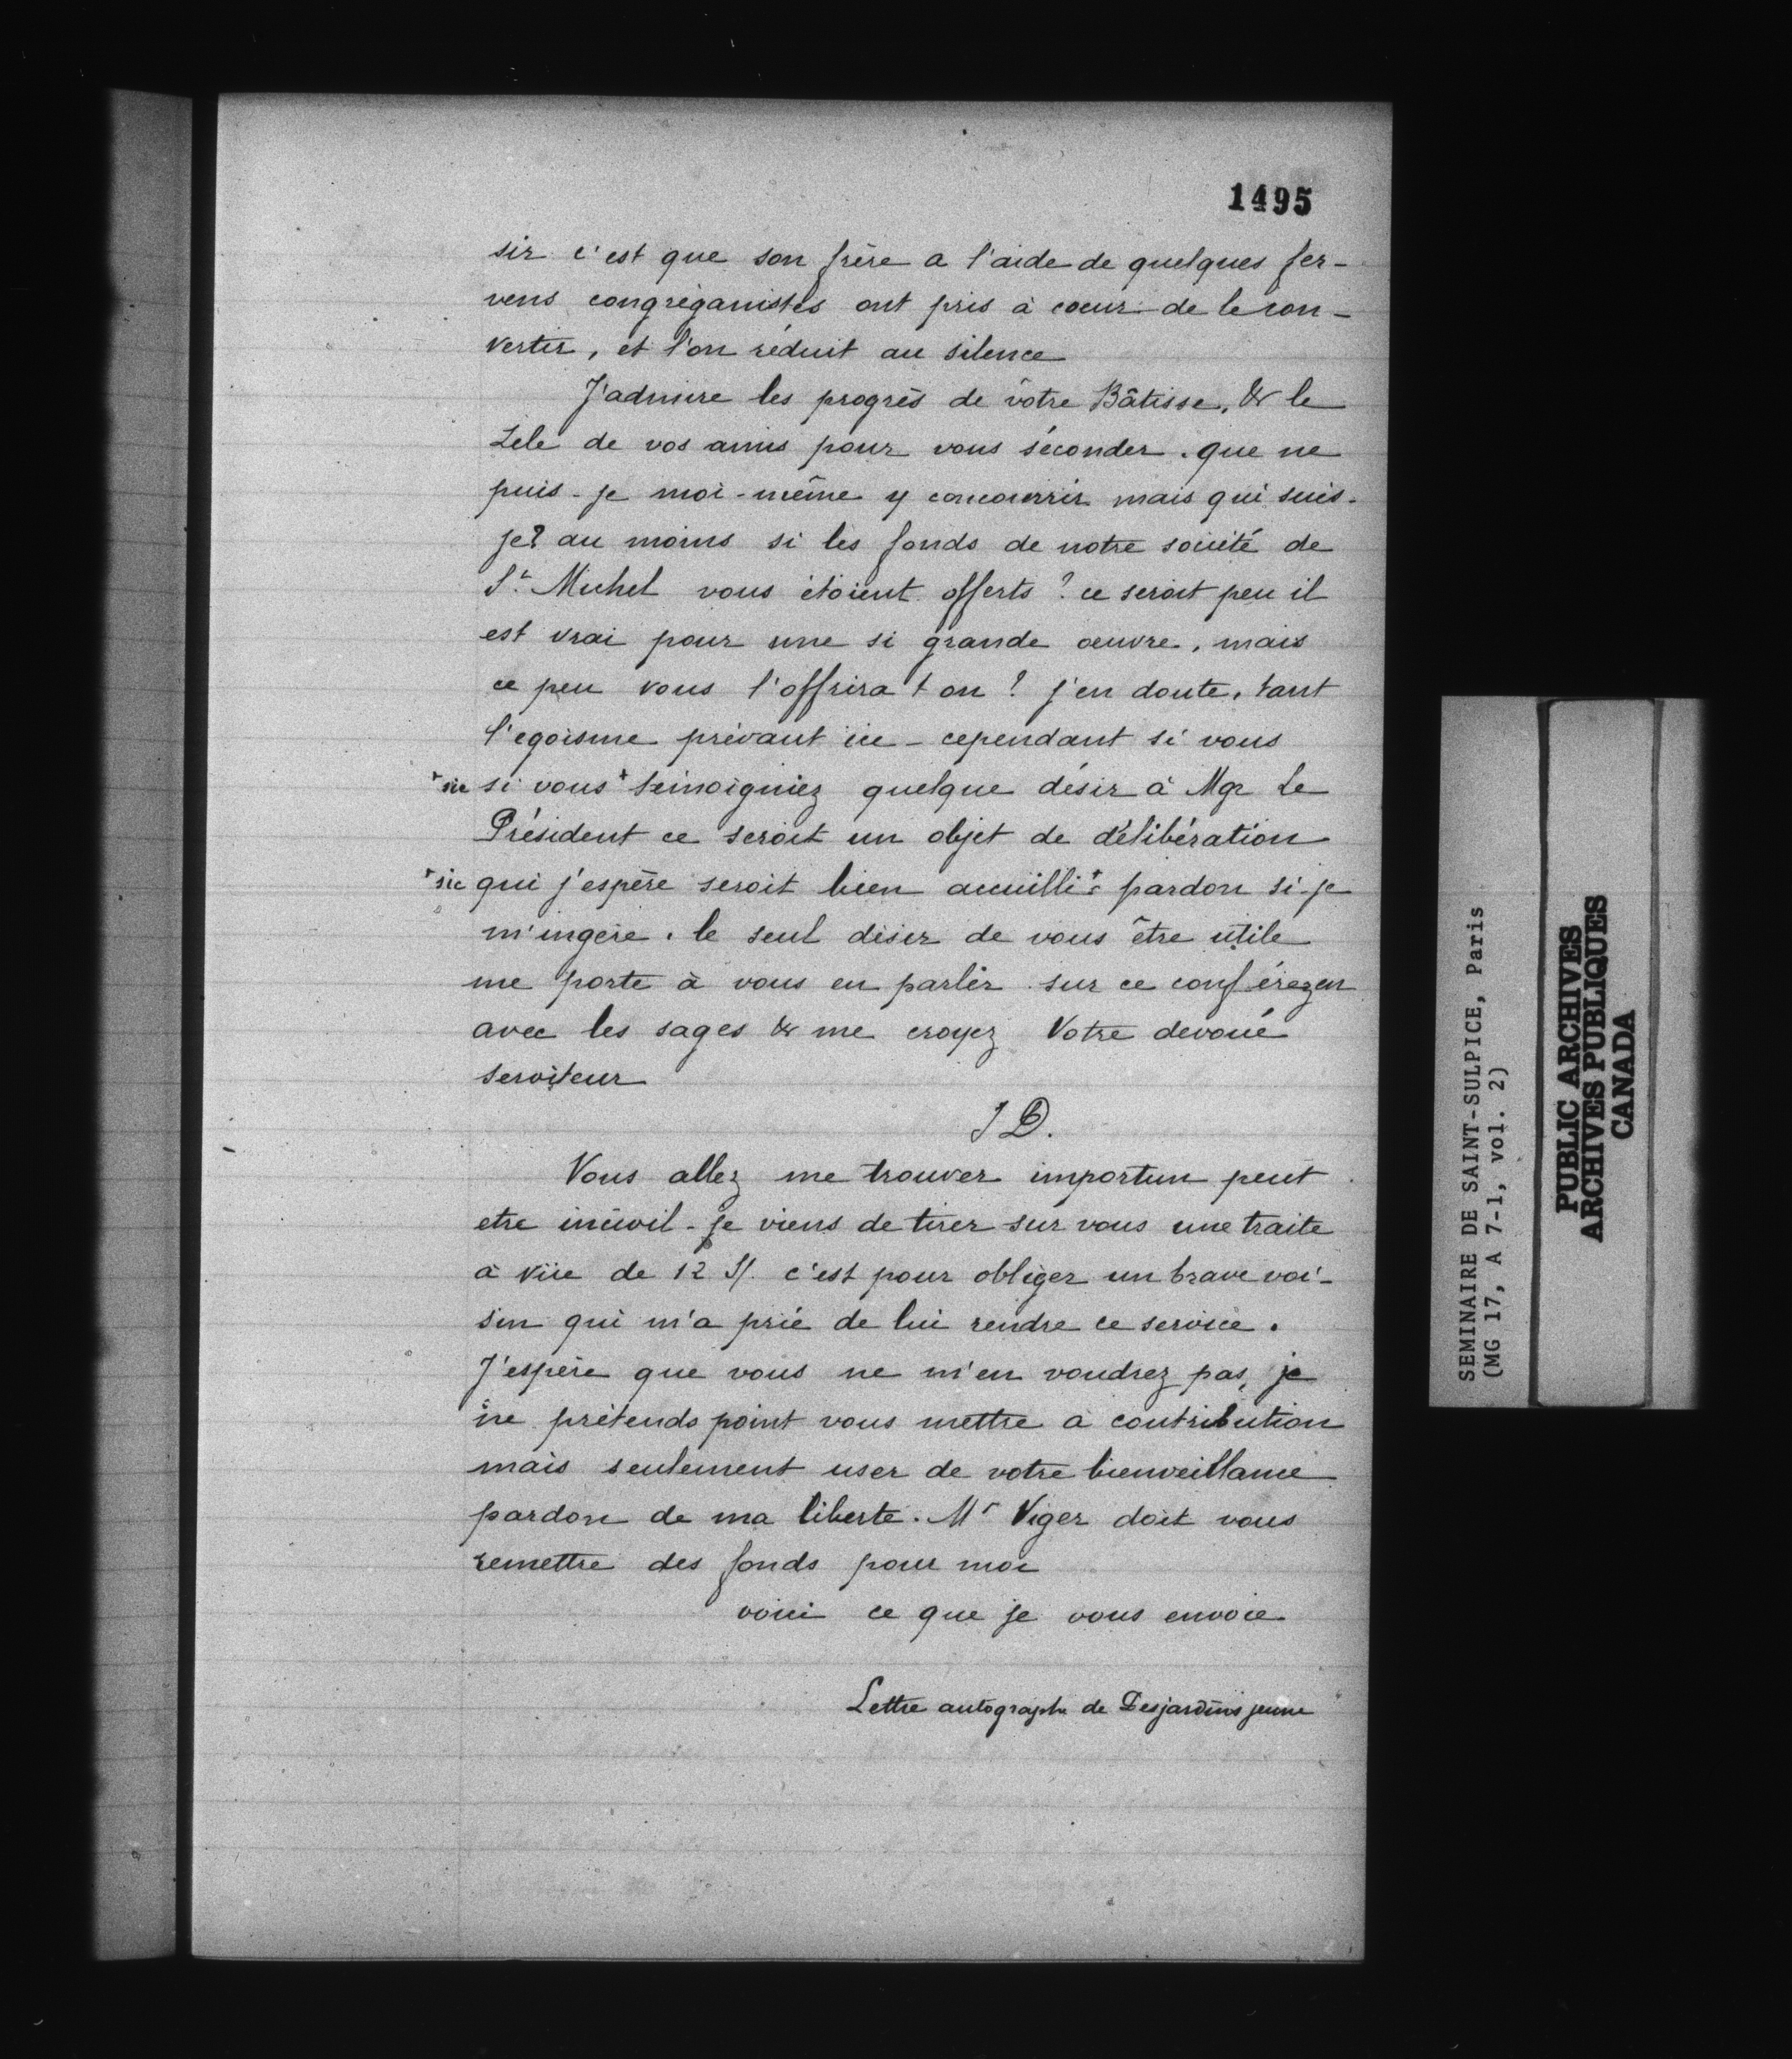 1495
sir c'est que son frère a l'aide de quelques fer-
vens congréganistes ont pris à coeur de le con-
vertir, et l'on réduit au silence
J'admire les progrès de vôtre Bâtisse, & le
Zele de vos amis pour vous séconder. que ne
puis-je moi-même y concourrir mais qui suis-
je? au moins si les fonds de notre société de
St. Michel vous étoient offerts? ce seroit peu il
est vrai pour une si grande oeuvre, mais
ce peu vous l'offrira t on? j'en doute, tant
l'egoisme prévaut ici - cependant si vous
+sic si vous+ témoigniez quelque désir à Mgr Le
Président ce seroit un objet de délibération
+sic qui j'espère seroit bien accuilli+ pardon si-je
m'ingère. le seul désir de vous être utile
me porte à vous en parler sur ce conférez en
avec les sages & me croyez Votre devoué
serviteur
J D.
Vous allez me trouver importun peut
etre incivil - je viens de tirer sur vous une traite
à vüe de 12 c'est pour obliger un brave voi-
sin qui m'a prié de lui rendre ce service.
J'espère que vous ne m'en voudrez pas, je
ne prétends point vous mettre à contribution
mais seulement user de votre bienveillance
pardon de ma liberte. Mr Viger doit vous
remettre des fonds pour moi
voici ce que je vous envoie
Lettre autographe de Desjardins jeune
SEMINAIRE DE SAINT-SULPICE, Paris
(MG 17, A 7-1, vol. 2)
PUBLIC ARCHIVES
ARCHIVES PUBLIQUES
CANADA